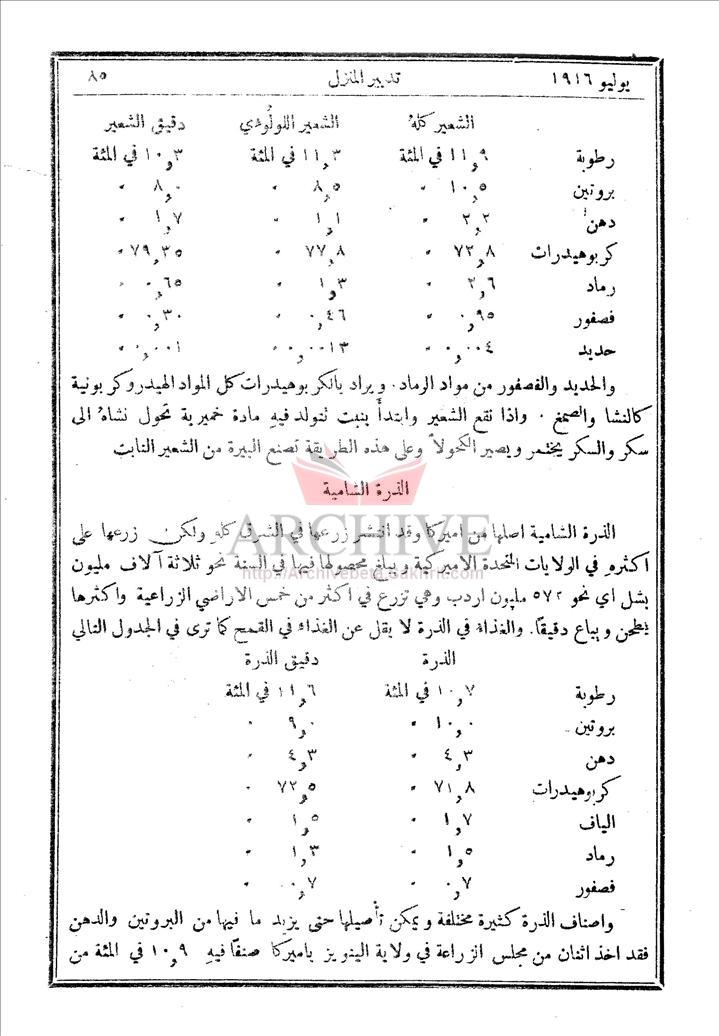 يوليو ١٩١٦ تدبير المنزل ٨٥
الشعير كلهُ الشعير اللولوُي دقيق الشعير
رطوبة ١١٫٩ في المئة ١١٫٣ في المئة ١٠٫٣ في المئة
بروتين ١٠٫٥ " ٨٫٥ " ٨٫٠ "
دهن ٢٫٢ " ١٫١ " ١٫٧ "
كربوهيدرات ٧٢٫٨ " ٧٧٫٨ " ٧٩٫٣٥ "
رماد ٢٫٦ " ١٫٣ " ٠٫٦٥ "
فصفور ٠٫٩٥ " ٠٫٤٦ " ٠٫٣٠ "
حديد ٠٫٠٠٤ " ٠٫٠٠١٣ " ٠٫٠٠١ "
والحديد والفصفور من مواد الرماد. ويراد بالكربوهيدرات كل المواد الهيدروكربونية
كالنشا والصمغ . واذا نقع الشعير وابتدأ ينبت تتولد فيهِ مادة خميرية تحول نشاهُ الى
سكر والسكر يختمر ويصير الكحولاً وعلى هذه الطريقة تصنع البيرة من الشعير النابت
الذرة الشامية
الذرة الشامية اصلها من اميركا وقد انتشر زرعها في الشرق كلهِ ولكن زرعها على
اكثرهِ في الولايات المتحدة الاميركية ويبلغ محصولها فيها في السنة نحو ثلاثة آلاف مليون
بشل اي نحو ٥٧٢ مليون اردب وهي تزرع في اكثر من خمس الاراضي الزراعية واكثرها
يطحن ويباع دقيقاً. والغذاء في الذرة لا يقل عن الغذاء في القمح كما ترى في الجدول التالي
الذرة دقيق الذرة
رطوبة ١٠٫٧ في المئة ١١٫٦ في المئة
بروتين ١٠٫٠ " ٩٫٠ "
دهن ٤٫٣ " ٤٫٣ "
كربوهيدرات ٧١٫٨ " ٧٢٫٥ "
الياف ١٫٧ " ١٫٥ "
رماد ١٫٥ " ١٫٣ "
فصفور ٠٫٧ " ٠٫٧ "
واصناف الذرة كثيرة مختلفة ويمكن تأصيلها حتى يزيد ما فيها من البروتين والدهن
فقد اخذ اثنان من مجلس الزراعة في ولاية الينويز باميركا صنفاً فيهِ ١٠٫٩ في المئة من
ARCHIVE
http://Archivebeta.Sakhrit.com